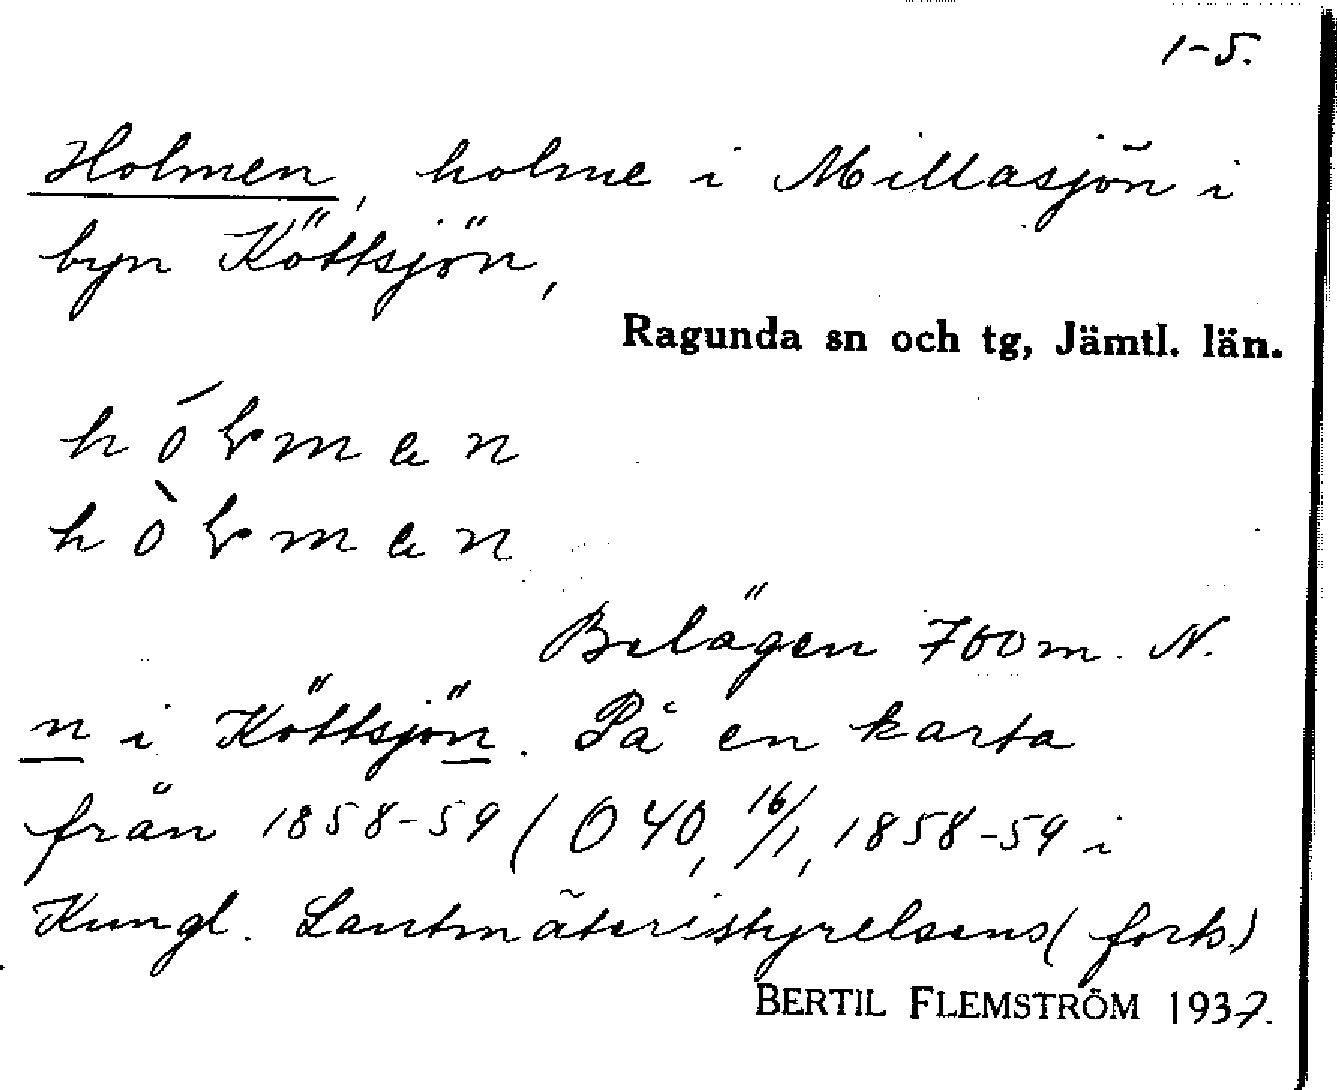 1-5.
Holmen, holme i Millasjön i
byn Köttsjön,
Ragunda sn och tg, Jämtl. län.
Belägen 700 m. N.
n i Köttsjön. På en karta
från 1858-59 (O 40, 16/1, 1858-59 i
Kungl. Lantmäteristyrelsens (forts.)
BERTIL FLEMSTRÖM 1937.